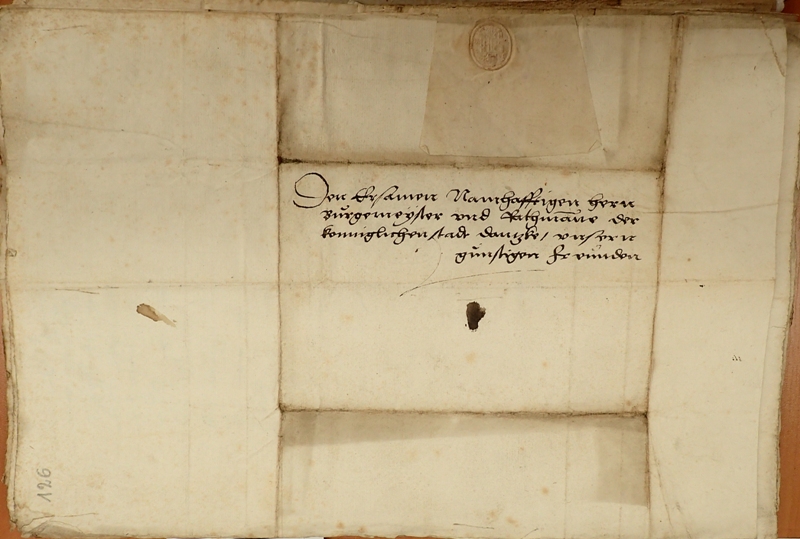 Den Ersamen Namhafftigen hern
Burgemeyster vnd Rathmanne der
konniglichen stadt dantzke, vnsern
gunstigen frvunden
126